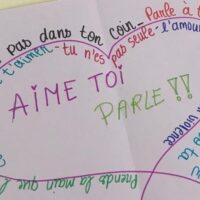 pas dans ton coin_ Parle à t
t'aiment - tu n'es pas seule - l'amour
AIME TOI
PARLE !!
violence
Prends la main que l